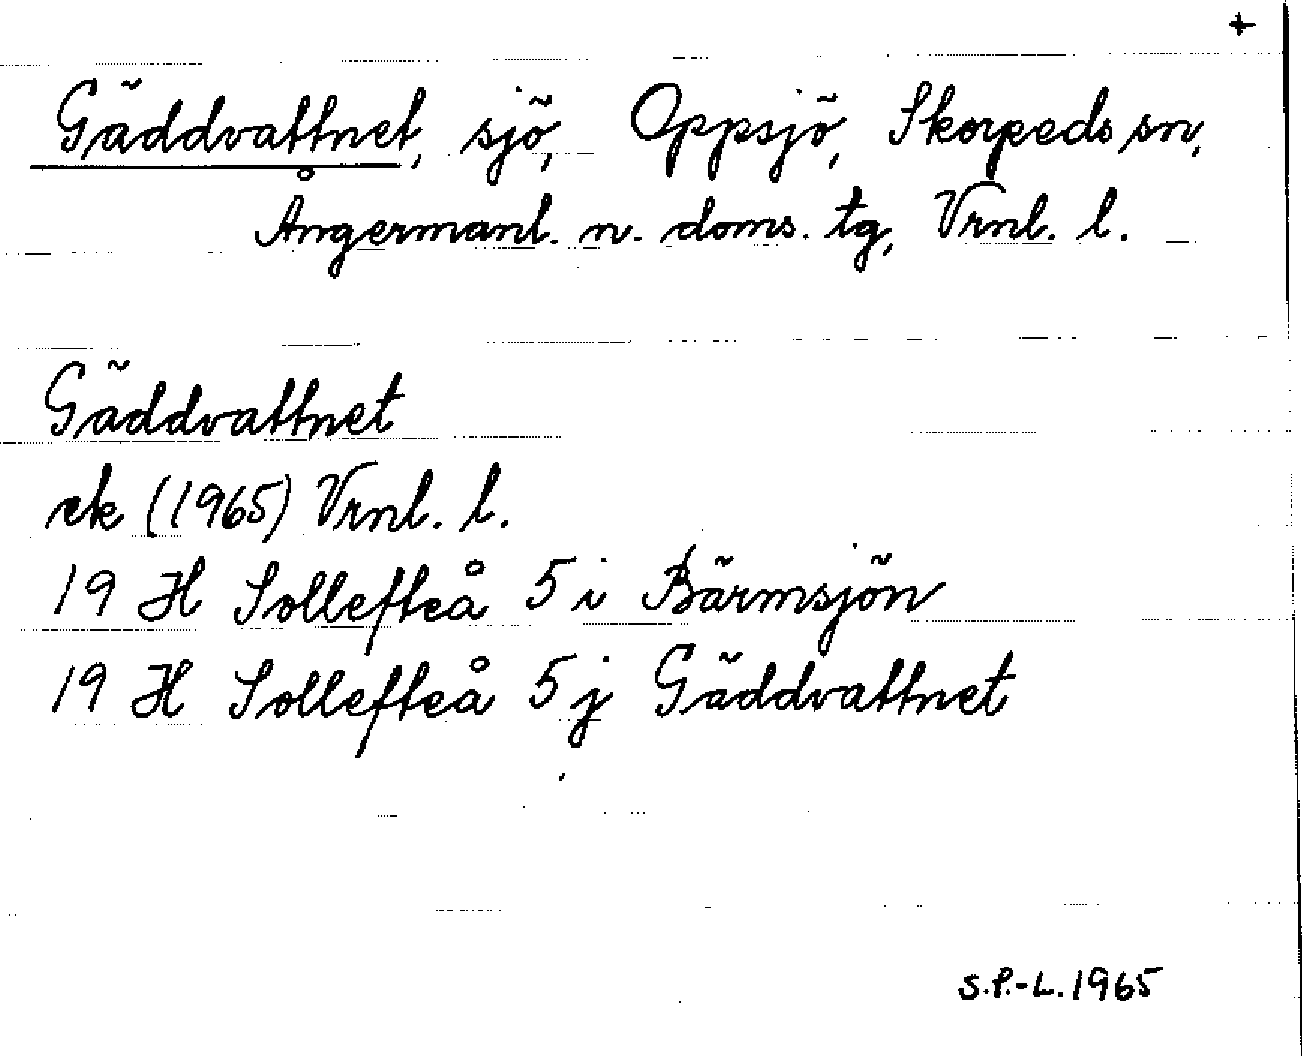 +
Gäddvattnet, sjö, Oppsjö, Skorpeds sn,
Ångermanl. n. doms. tg, Vrnl. l.
Gäddvattnet
ek (1965) Vrnl. l.
19 H Sollefteå 5 i Bärmsjön
19 H Sollefteå 5 j Gäddvattnet
S.P.-L. 1965